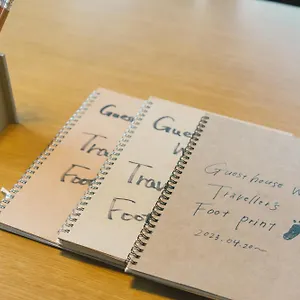 Gues
Trav
Foo
Gues
W
Trav
Foo
Guesthouse W
Traveller's
Foot print
2023.04.20~